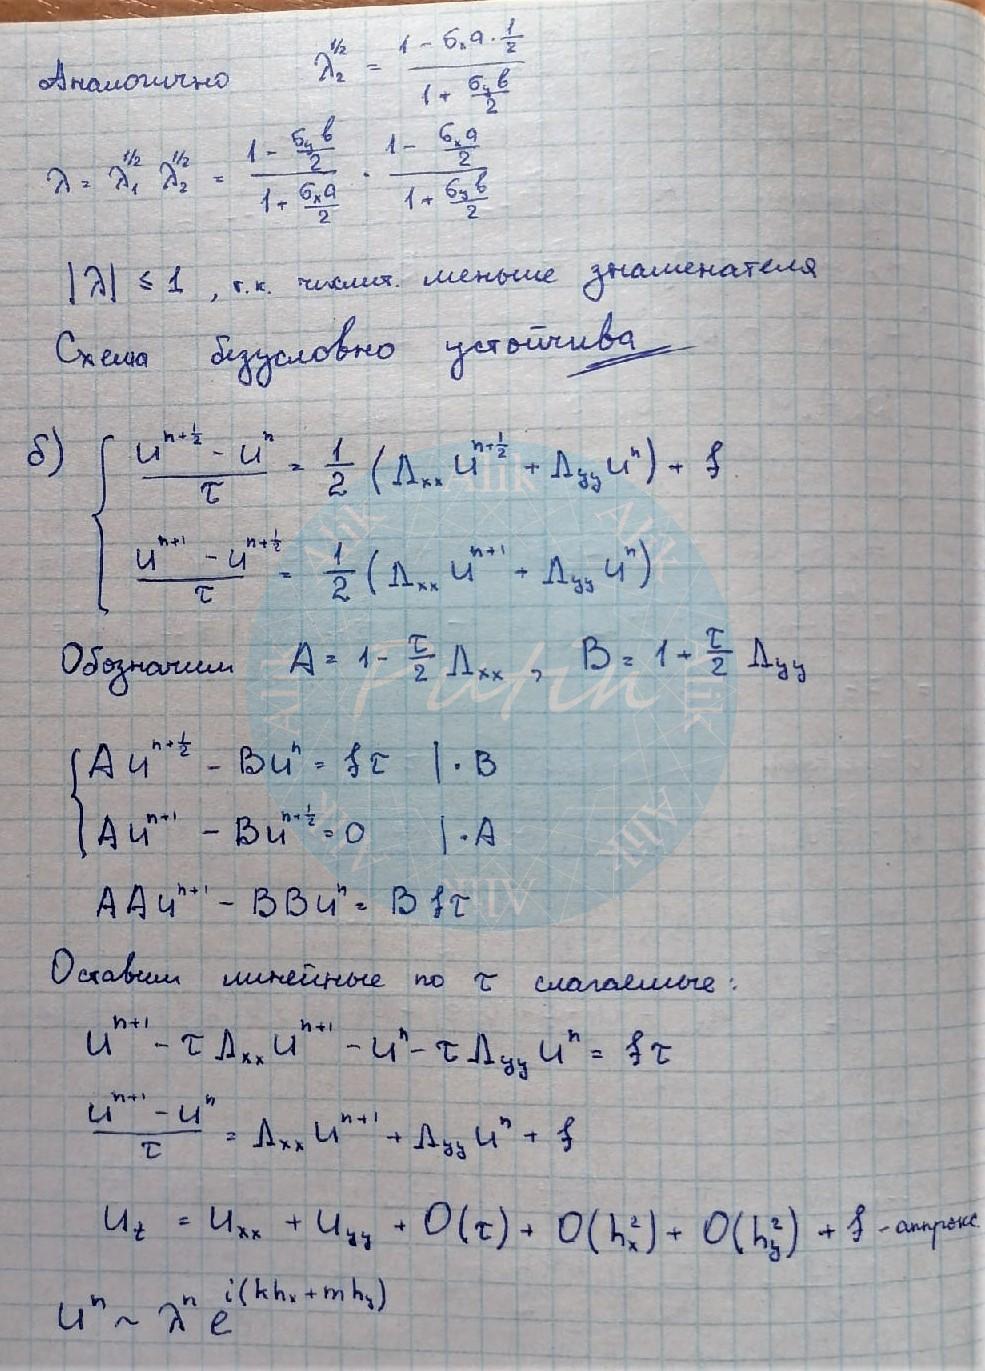 Аналогично λ₂^{1/2} = (1 - σₓa · 1/2) / (1 + σ_y b/2)
λ = λ₁^{1/2} λ₂^{1/2} = (1 - σ_y b/2) / (1 + σₓa/2) · (1 - σₓa/2) / (1 + σ_y b/2)
|λ| ≤ 1, т.к. числит. меньше знаменателя
Схема безусловно устойчива
б) { (u^{n+1/2} - u^n)/τ = 1/2 (Λ_xx u^{n+1/2} + Λ_yy u^n) + f
(u^{n+1} - u^{n+1/2})/τ = 1/2 (Λ_xx u^{n+1} + Λ_yy u^n)
Обозначим A = 1 - τ/2 Λ_xx, B = 1 + τ/2 Λ_yy
{ A u^{n+1/2} - B u^n = fτ | · B
A u^{n+1} - B u^{n+1/2} = 0 | · A
A A u^{n+1} - B B u^n = B fτ
Оставим линейные по τ слагаемые:
u^{n+1} - τ Λ_xx u^{n+1} - u^n - τ Λ_yy u^n = fτ
(u^{n+1} - u^n)/τ = Λ_xx u^{n+1} + Λ_yy u^n + f
u_t = u_xx + u_yy + O(τ) + O(h_x^2) + O(h_y^2) + f - аппрокс
u^n ~ λ^n e^{i(kh_x + mh_y)}
Alik Alik Alik Alik Alik Alik Alik Alik
Putin